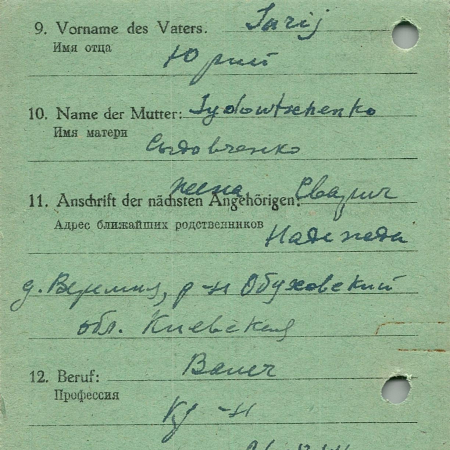 9. Vorname des Vaters. Jurij
Имя отца
Юрий
10. Name der Mutter: Sydowtschenko
Имя матери
Сыдовченко
жена Сварич
11. Anschrift der nächsten Angehörigen:
Адрес ближайших родственников
Надежда
д. Веремия, р-н Обуховский
обл. Киевская
12. Beruf: Bauer
Профессия
Кр-н